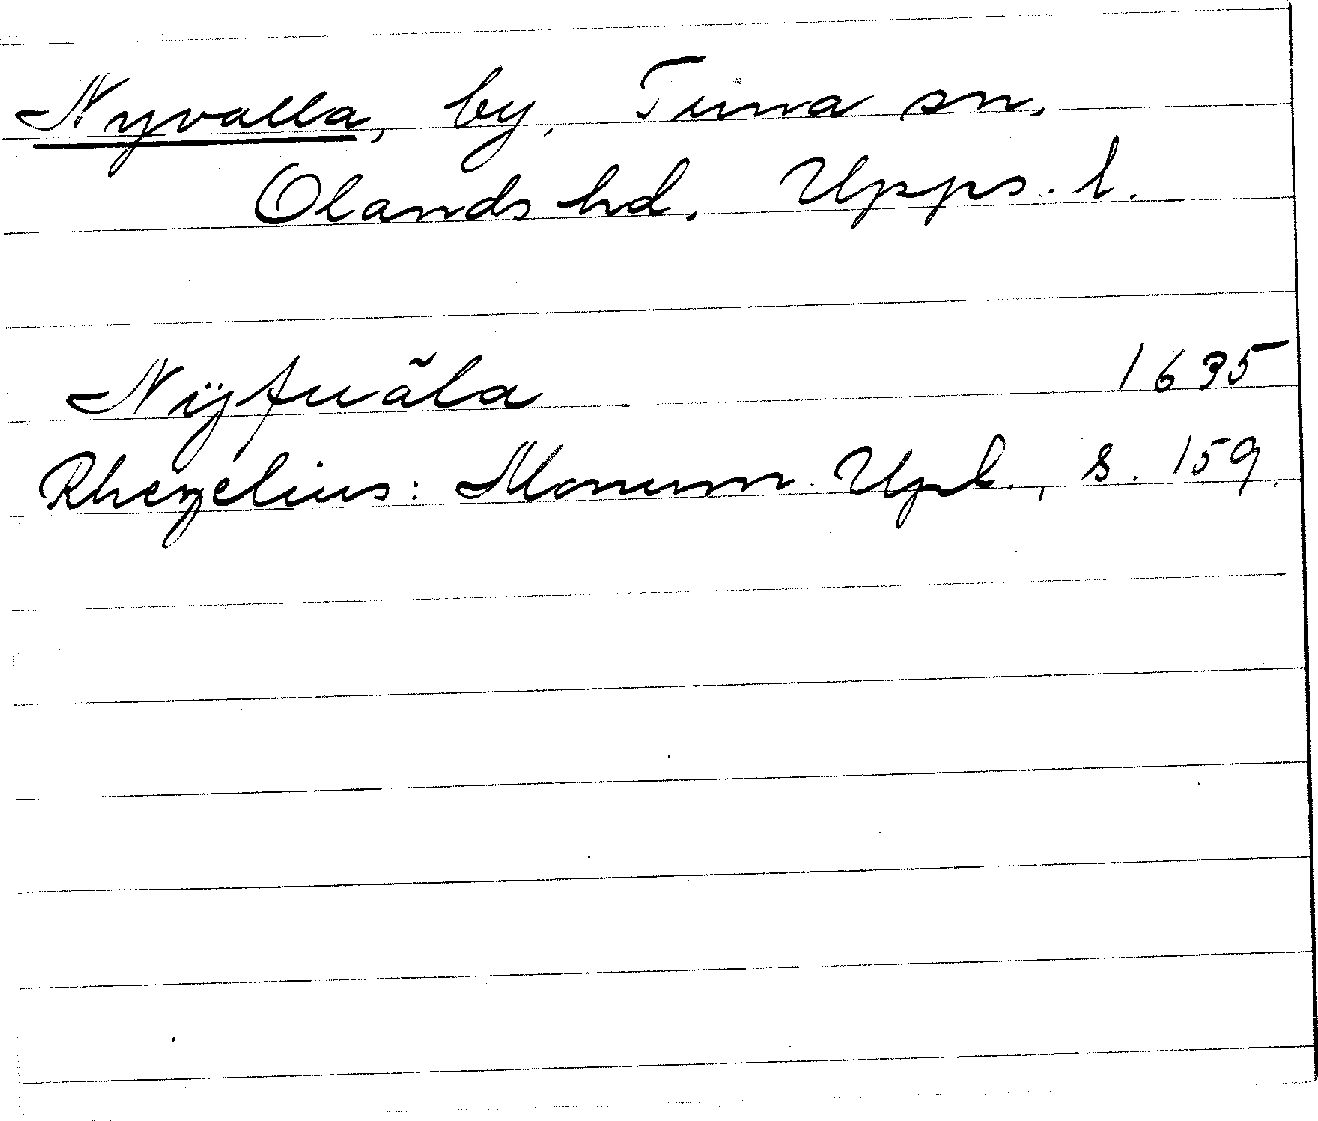 Nyvalla, by, Tuna sn,
Olands hd, Upps. l.
Nÿfuãla 1635
Rhezelius: Monum. Upl., s. 159.